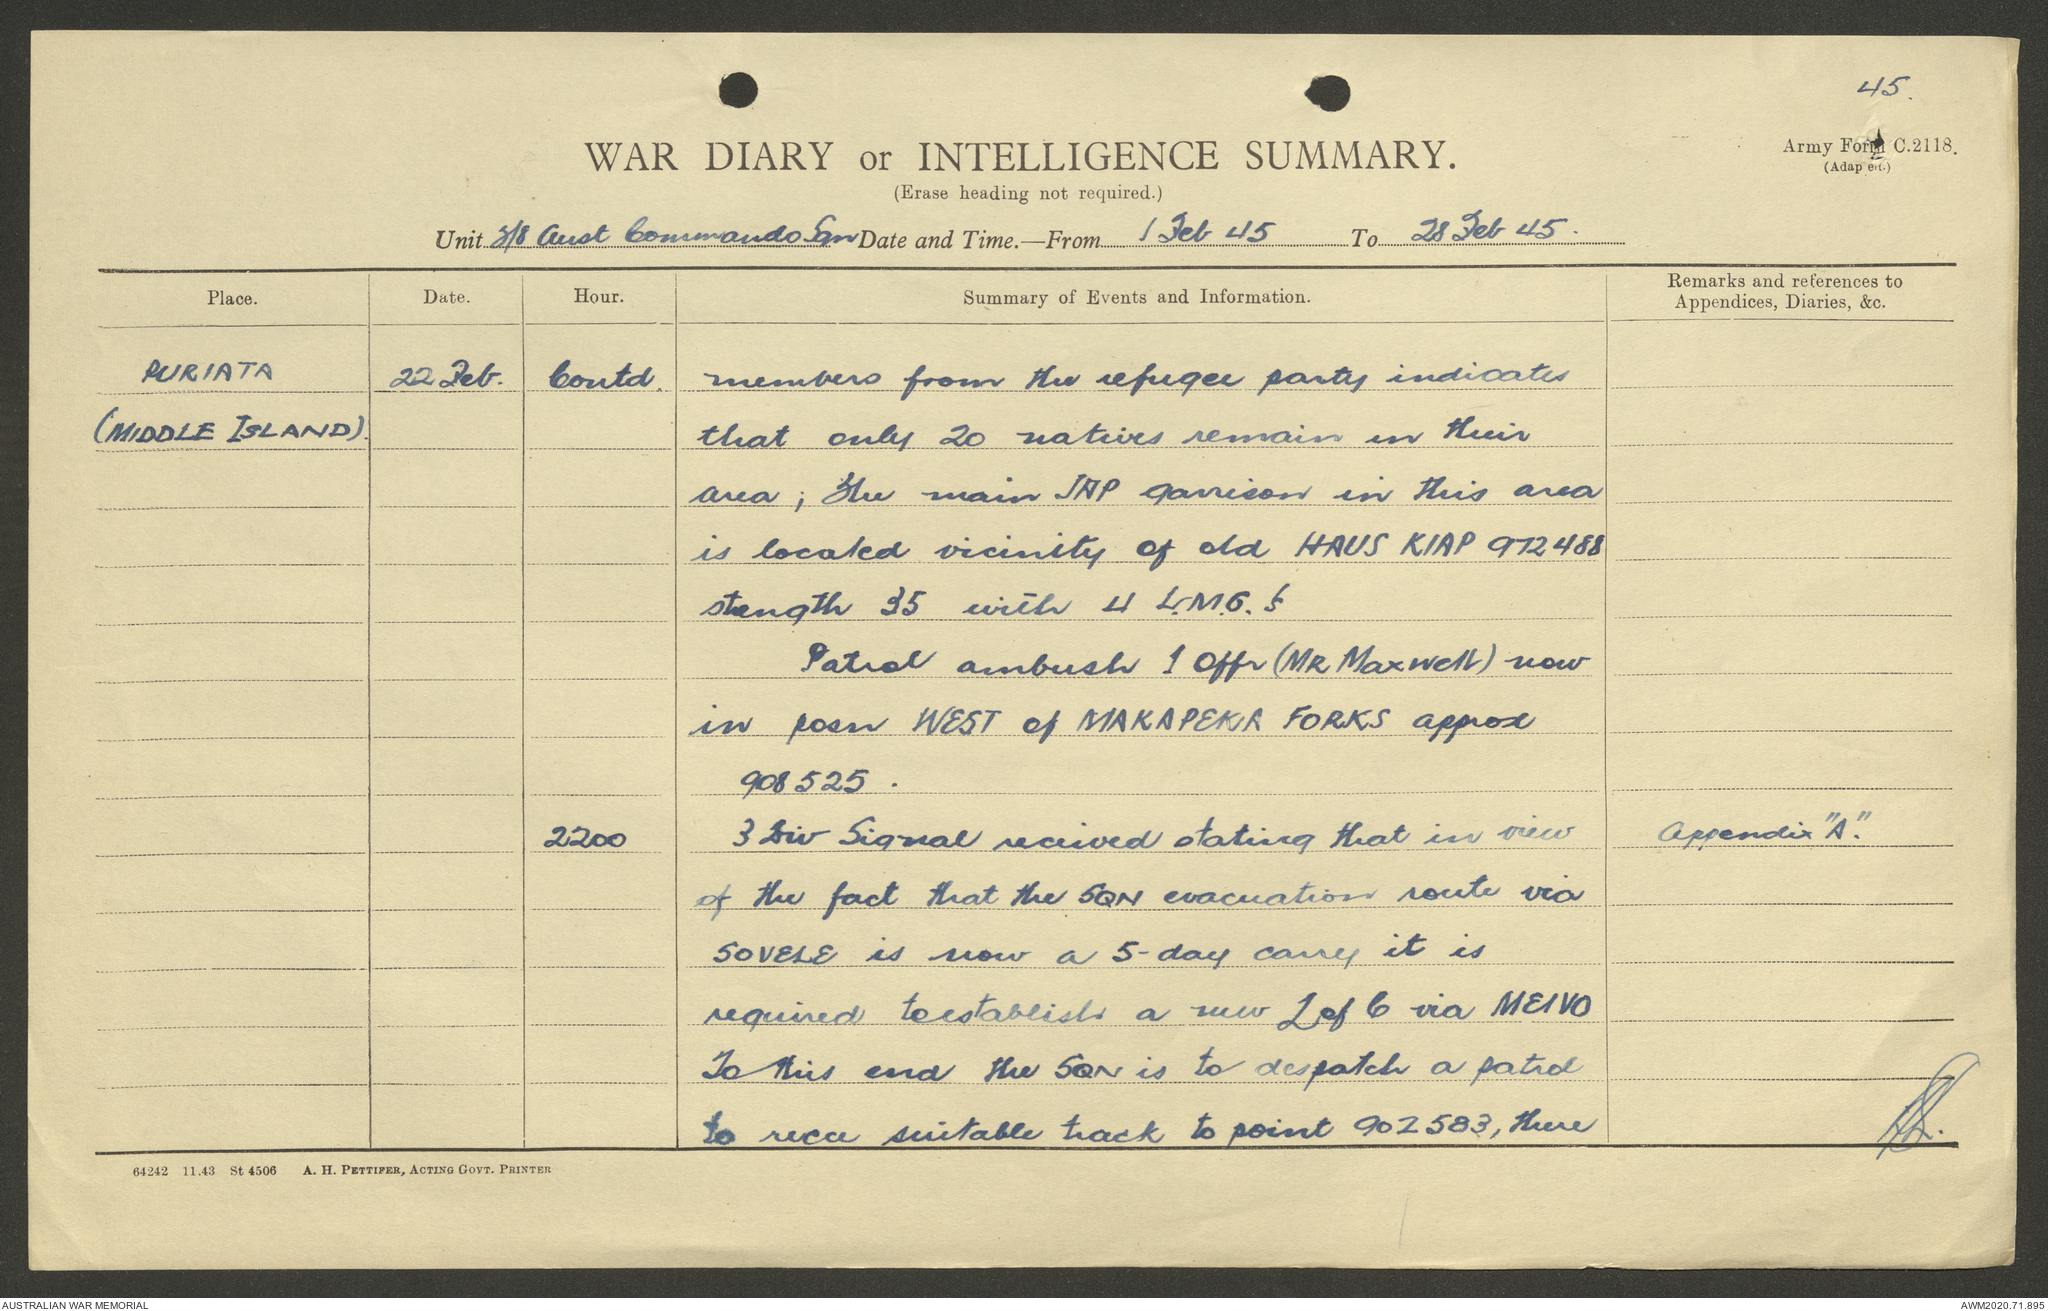 45.
Army Form C.2118.
(Adapted.)
WAR DIARY or INTELLIGENCE SUMMARY.
(Erase heading not required.)
Unit 2/8 Aust Commando Sqn Date and Time.—From 1 Feb 45 To 28 Feb 45.
Place. Date. Hour. Summary of Events and Information. Remarks and references to
Appendices, Diaries, &c.
PURIATA 22 Feb. Contd. members from the refugee party indicates
(MIDDLE ISLAND). that only 20 natives remain in their
area; the main JAP garrison in this area
is located vicinity of old HAUS KIAP 972488
strength 35 with 4 L.M.G.s
Patrol ambush 1 Offr (MR Maxwell) now
in posn WEST of MAKAPEKA FORKS approx
908525.
2200 3 Div Signal received stating that in view Appendix "A".
of the fact that the SQN evacuation route via
SOVELE is now a 5-day carry it is
required to establish a new L of C via MEIVO
To this end the SQN is to despatch a patrol
to recce suitable track to point 902583, there
64242 11.43 St 4506 A. H. PETTIFER, ACTING GOVT. PRINTER
AUSTRALIAN WAR MEMORIAL AWM2020.71.895